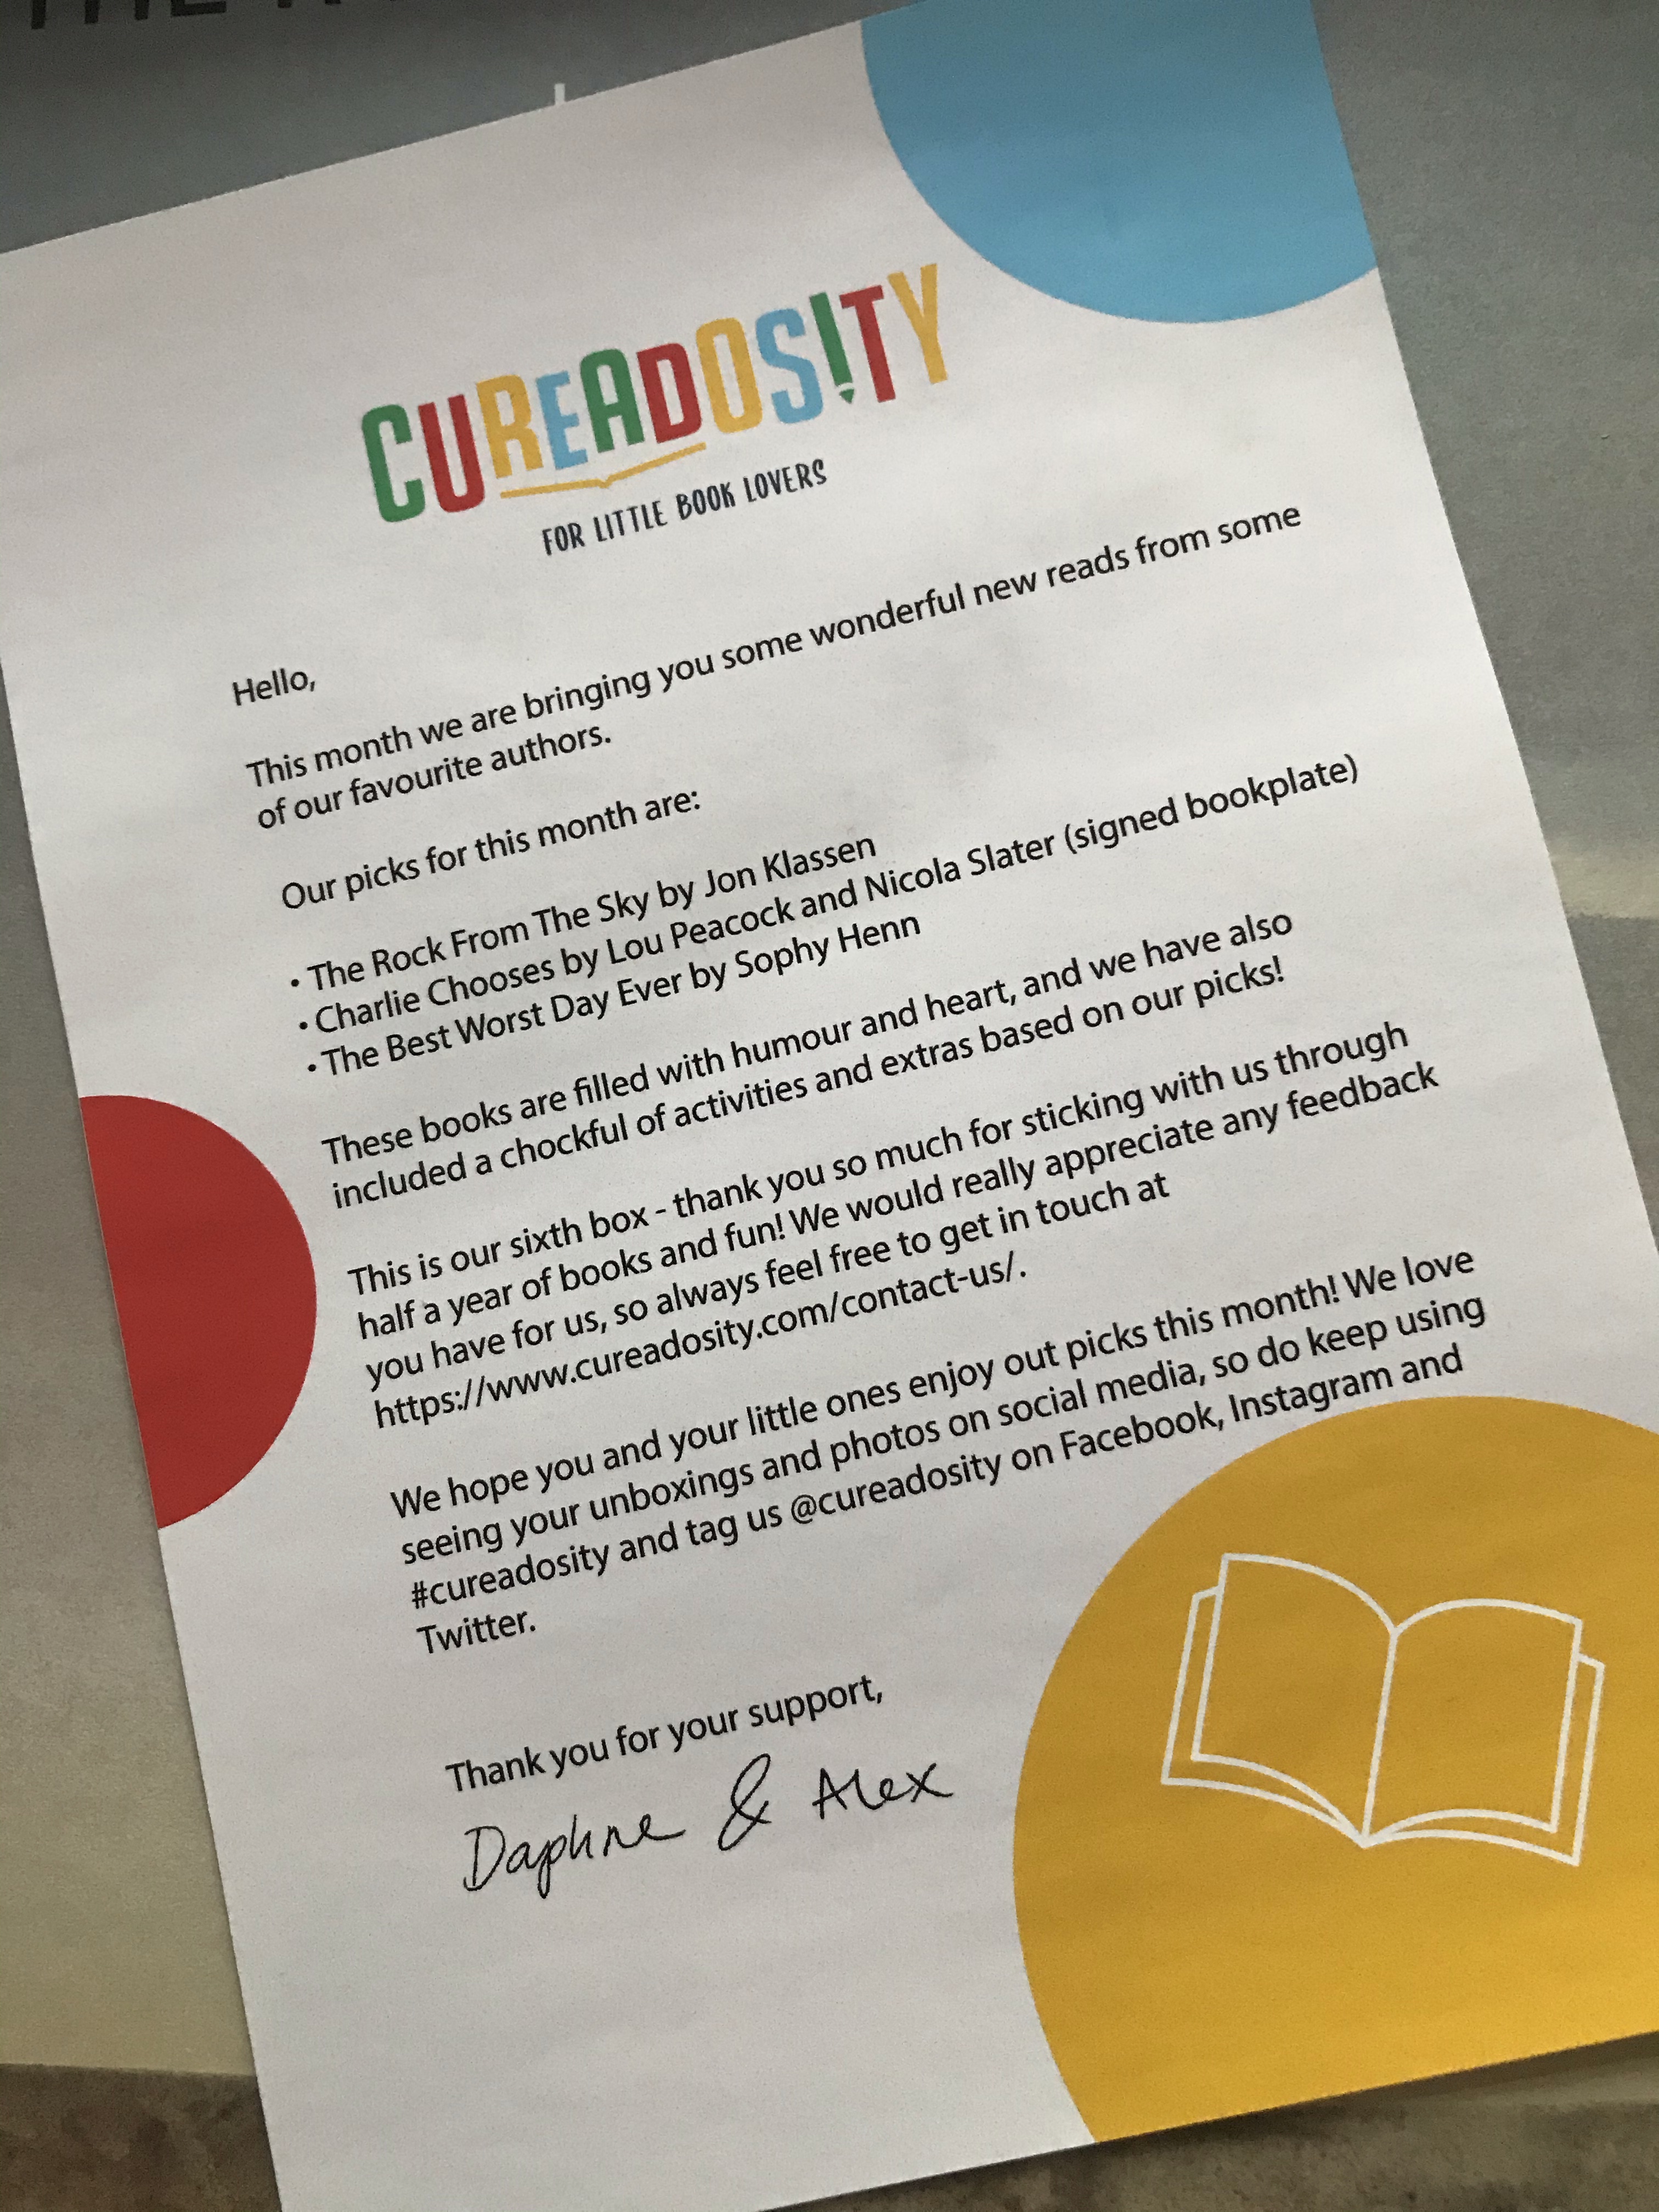 CUREADOS!TY
FOR LITTLE BOOK LOVERS
Hello,
This month we are bringing you some wonderful new reads from some
of our favourite authors.
Our picks for this month are:
• The Rock From The Sky by Jon Klassen
• Charlie Chooses by Lou Peacock and Nicola Slater (signed bookplate)
• The Best Worst Day Ever by Sophy Henn
These books are filled with humour and heart, and we have also
included a chockful of activities and extras based on our picks!
This is our sixth box - thank you so much for sticking with us through
half a year of books and fun! We would really appreciate any feedback
you have for us, so always feel free to get in touch at
https://www.cureadosity.com/contact-us/.
We hope you and your little ones enjoy out picks this month! We love
seeing your unboxings and photos on social media, so do keep using
#cureadosity and tag us @cureadosity on Facebook, Instagram and
Twitter.
Thank you for your support,
Daphne & Alex